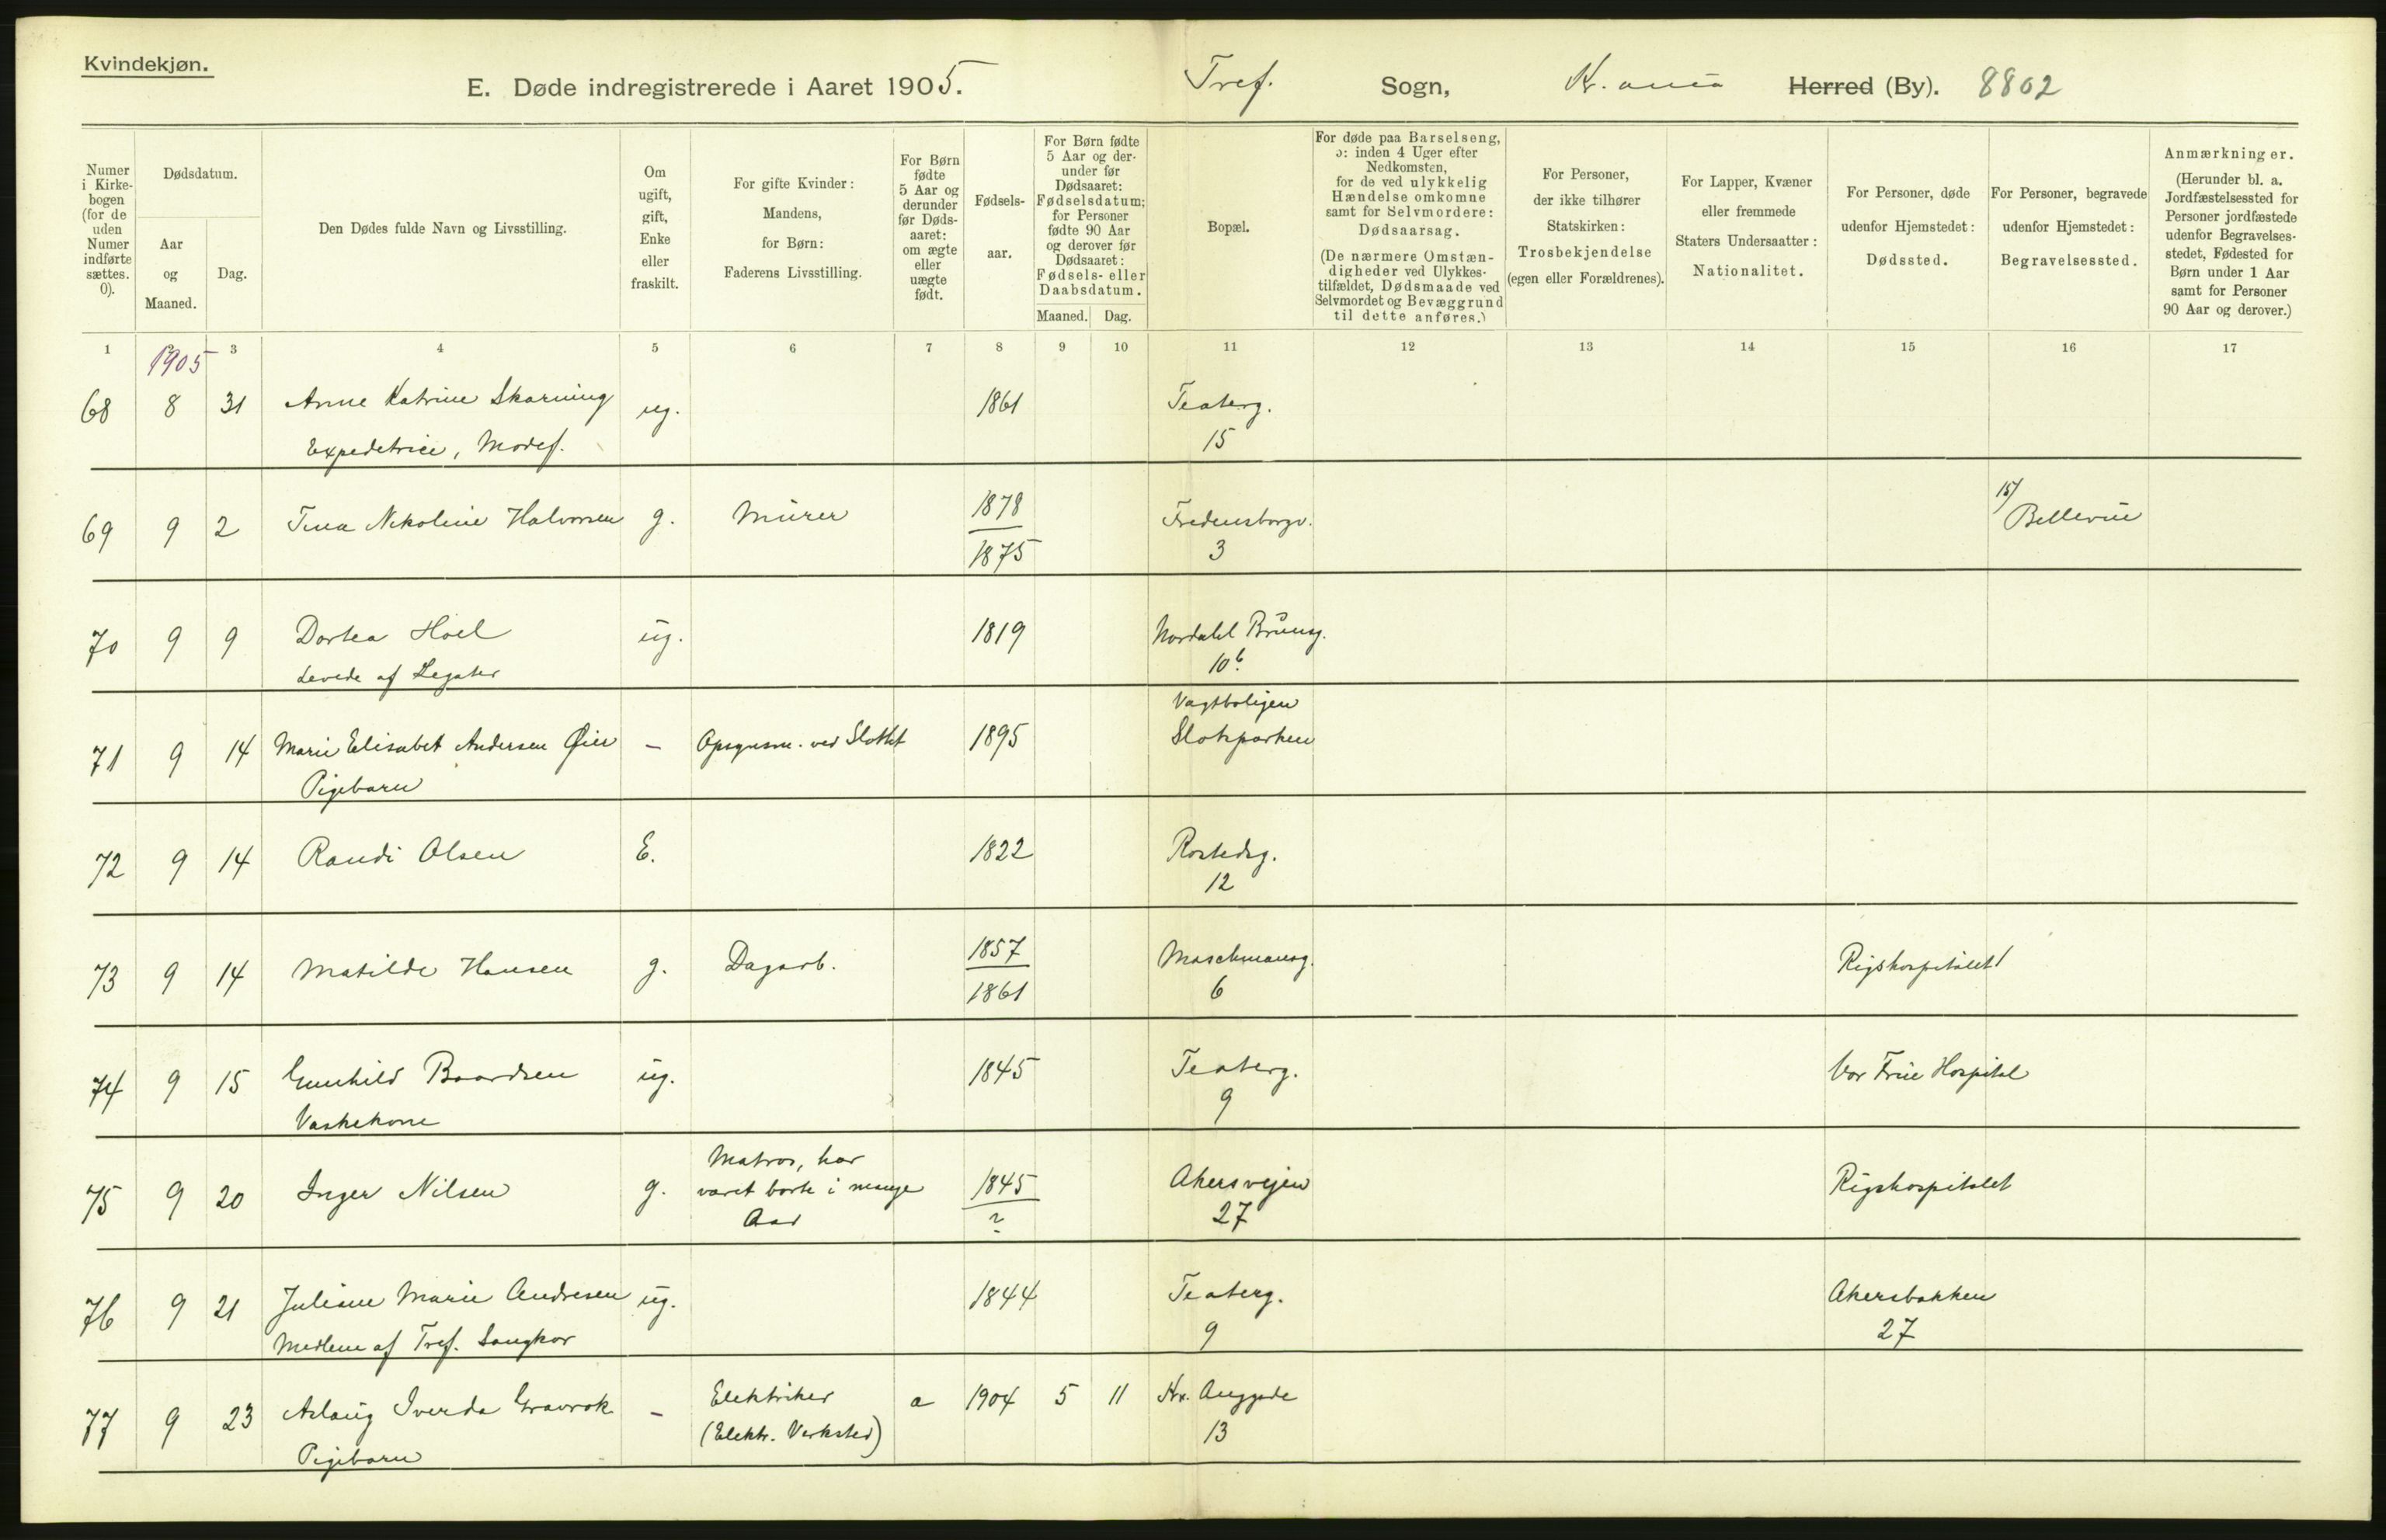 Kvindekjøn.
E. Døde indregistrerede i Aaret 1905.
Tref. Sogn, Kr.ania Herred (By). 8802
Numer i Kirkebogen (for de uden Numer indførte sættes. 0).
Dødsdatum.
Aar og Maaned.
Dag.
Den Dødes fulde Navn og Livsstilling.
Om ugift, gift, Enke eller fraskilt.
For gifte Kvinder: Mandens, for Børn: Faderens Livsstilling.
For Børn fødte 5 Aar og derunder før Dødsaaret: om ægte eller uægte født.
Fødselsaar.
For Børn fødte 5 Aar og derunder før Dødsaaret: Fødselsdatum; for Personer fødte 90 Aar og derover før Dødsaaret: Fødsels- eller Daabsdatum.
Maaned. Dag.
Bopæl.
For døde paa Barselseng, ɔ: inden 4 Uger efter Nedkomsten, for de ved ulykkelig Hændelse omkomne samt for Selvmordere: Dødsaarsag.
(De nærmere Omstændigheder ved Ulykkestilfældet, Dødsmaade ved Selvmordet og Bevæggrund til dette anføres.)
For Personer, der ikke tilhører Statskirken: Trosbekjendelse (egen eller Forældrenes).
For Lapper, Kvæner eller fremmede Staters Undersaatter: Nationalitet.
For Personer, døde udenfor Hjemstedet: Dødssted.
For Personer, begravede udenfor Hjemstedet: Begravelsessted.
Anmærkninger.
(Herunder bl. a. Jordfæstelsessted for Personer jordfæstede udenfor Begravelsesstedet, Fødested for Børn under 1 Aar samt for Personer 90 Aar og derover.)
1 3 4 5 6 7 8 9 10 11 12 13 14 15 16 17
1905
68 8 31 Anne Katrine Skarning ug. 1861 Teaterg.
Expeditrice, Modef. 15
69 9 2 Tina Nikoline Halvorsen g. Murer 1878 Fredensborgv. 15/ Bellevue
1875 3
70 9 9 Dortea Hoel ug. 1819 Nordahl Brunsg.
Levede af Legater 10b.
Vagtboligen
71 9 14 Marie Elisabet Andersen Øier – Opsynsm. ved Slottet 1895 Slotsparken
Pigebarn
72 9 14 Randi Olsen E. 1822 Rostedsg.
12
73 9 14 Matilde Hansen g. Dagarb. 1857 Maschmansg. Rigshospitalet
1861 6
74 9 15 Gunhild Baardsen ug. 1845 Teaterg. Vor Frue Hospital
Vaskekone 9
Matros, har
75 9 20 Inger Nilsen g. været borte i mange 1845 Akersvejen Rigshospitalet
Aar ? 27
76 9 21 Juliane Marie Andresen ug. 1844 Teaterg. Akersbakken
Medlem af Tref. Sangkor 9 27
77 9 23 Aslaug Iverda Gravrok – Elektriker a 1904 5 11 Kr. Auggade
(Elektr. Verksted) 13
Pigebarn